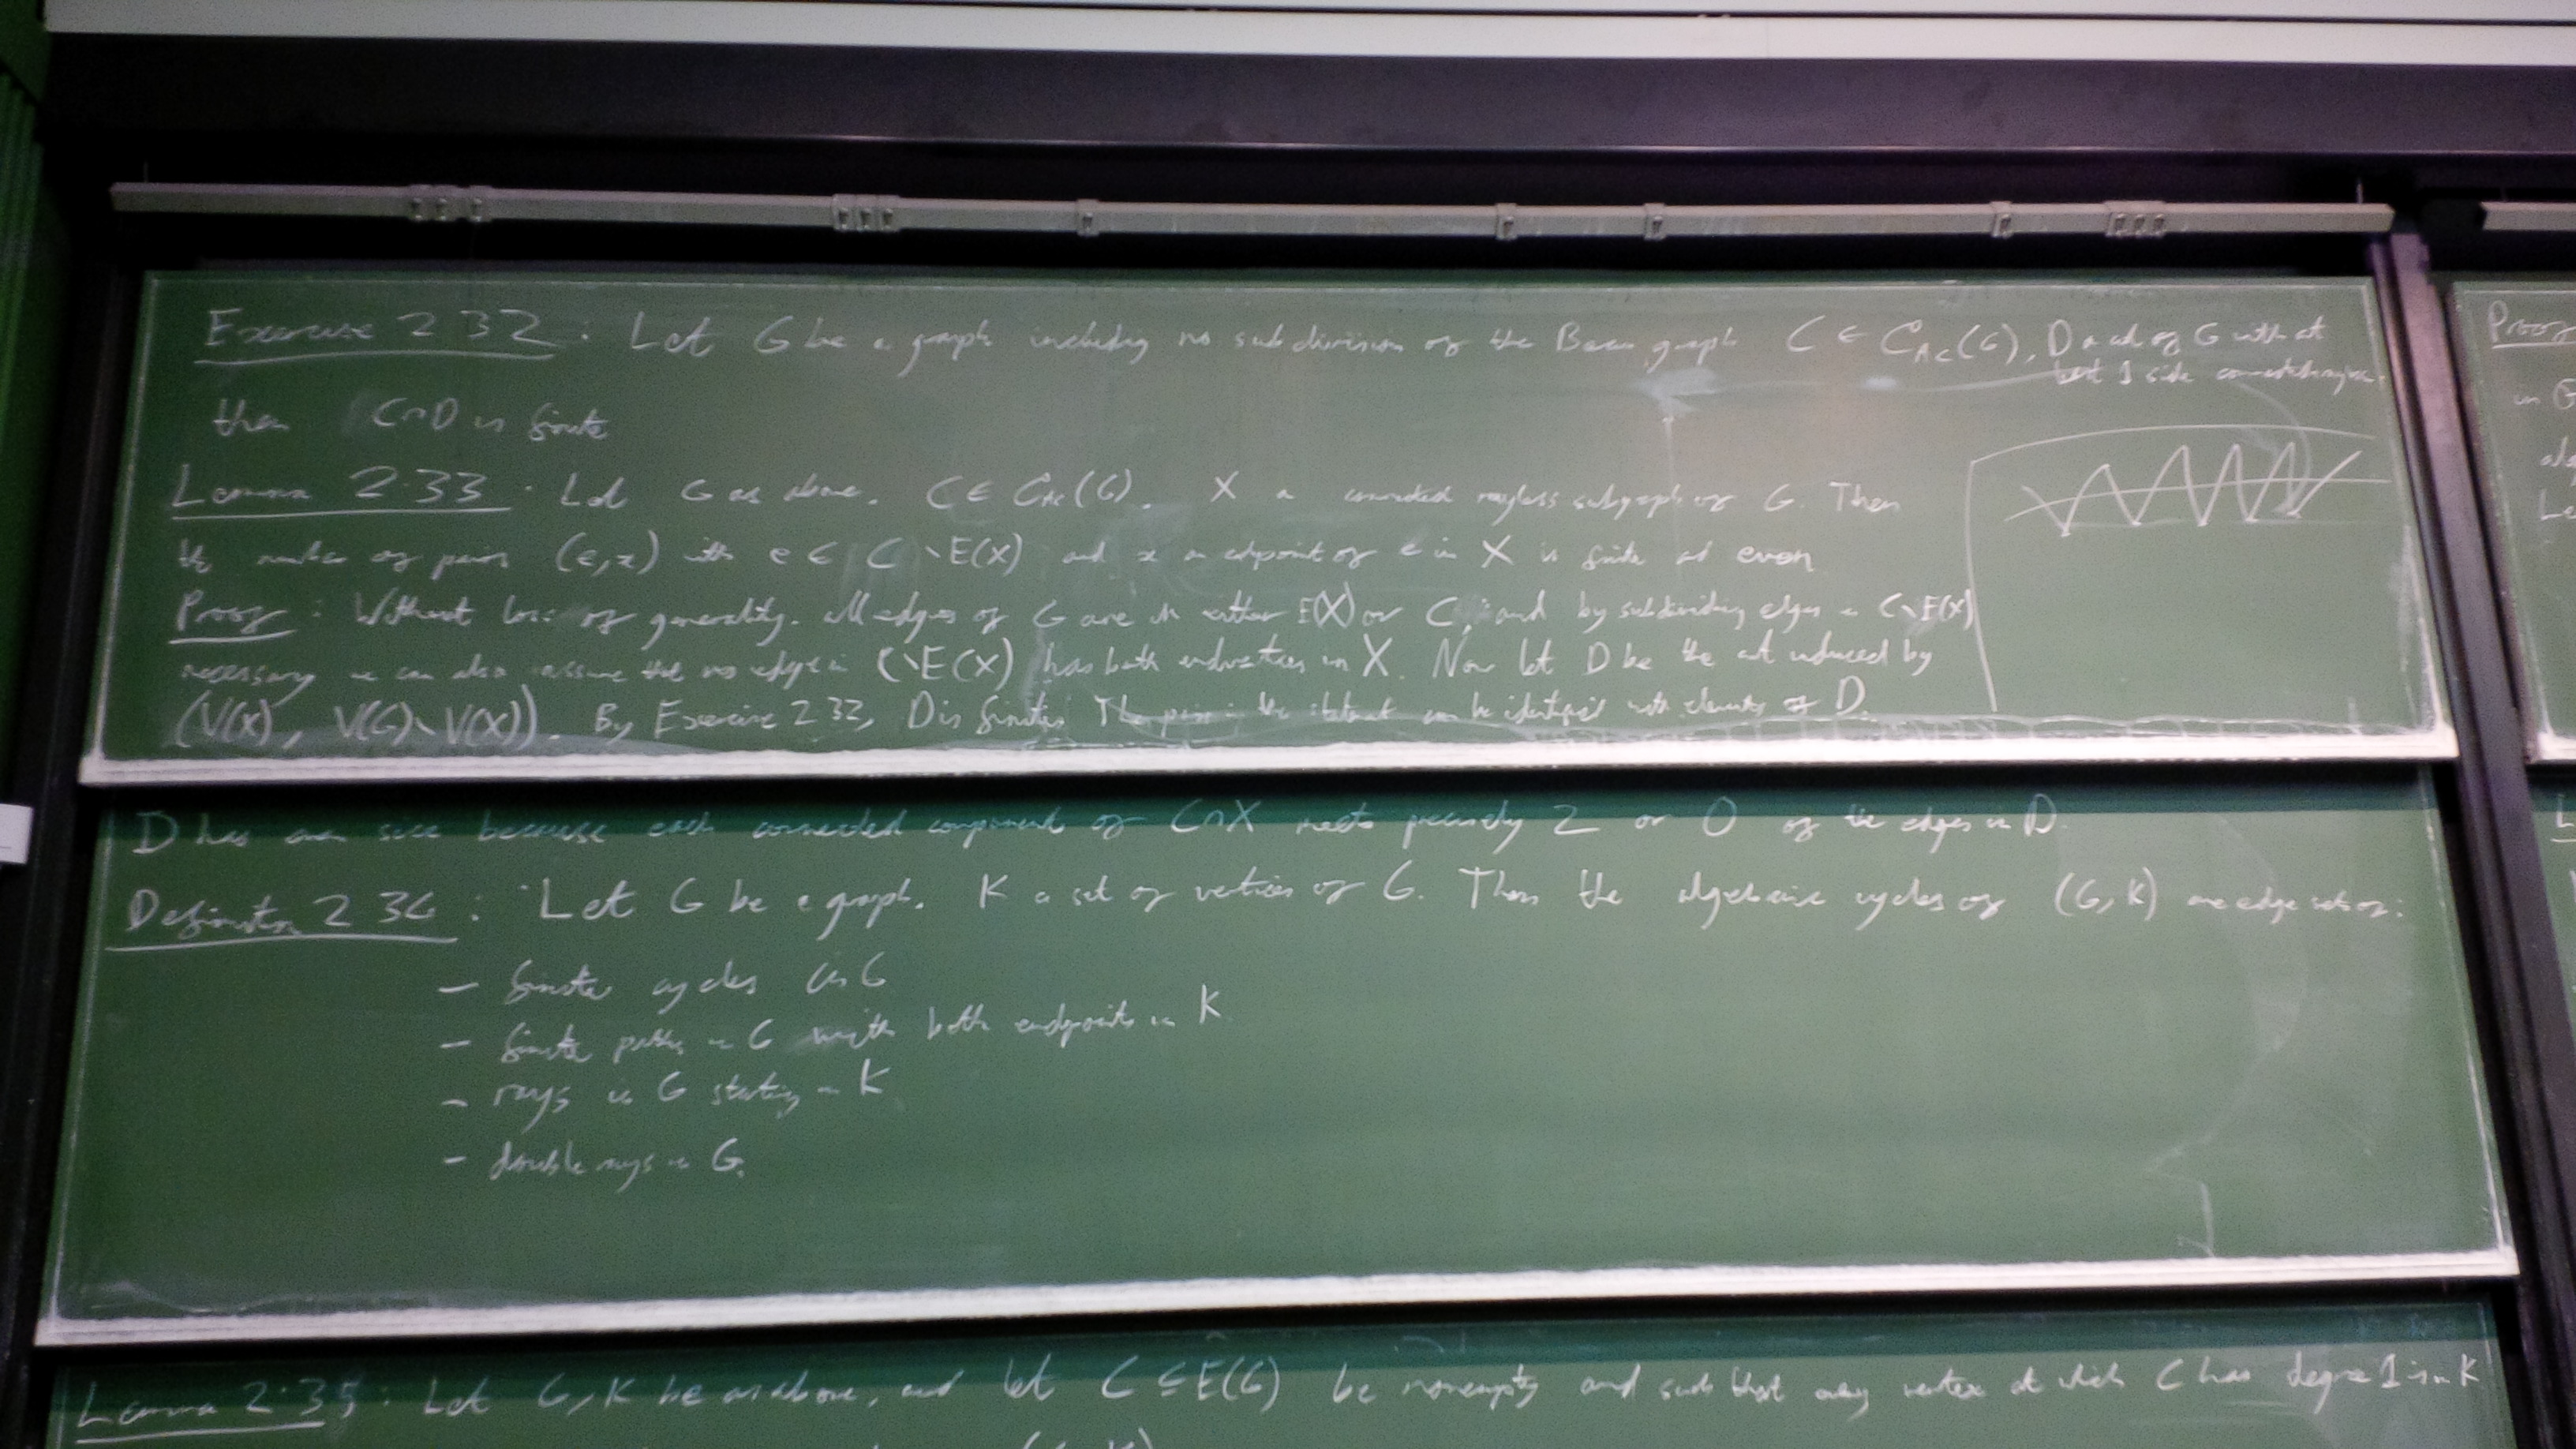 Exercise 2.32: Let G be a graph including no subdivision of the Bean graph C ∈ C_AC(G), D a cut of G with at
least 1 side connected rayless.
then C∩D is finite
Lemma 2.33. Let G as above. C ∈ C_AC(G). X a connected rayless subgraph of G. Then
the number of pairs (e,x) with e ∈ C∖E(X) and x an endpoint of e in X is finite and even
Proof: Without loss of generality. All edges of G are in either E(X) or C, and by subdividing edges in C∖E(X)
necessary we can also assume that no edge in C∖E(X) has both endvertices in X. Now let D be the cut induced by
(V(X), V(G)∖V(X)). By Exercise 2.32, D is finite. The pairs in the statement can be identified with elements of D.
D has even size because each connected component of C∩X meets precisely 2 or 0 of the edges in D.
Definition 2.34: Let G be a graph. K a set of vertices of G. Then the algebraic cycles of (G,K) are edge sets of:
- finite cycles in G
- finite paths in G with both endpoints in K
- rays in G starting in K
- double rays in G.
Lemma 2.35: Let G,K be as above, and let C ⊆ E(G) be nonempty and such that any vertex at which C has degree 1 is in K
Proof
in G